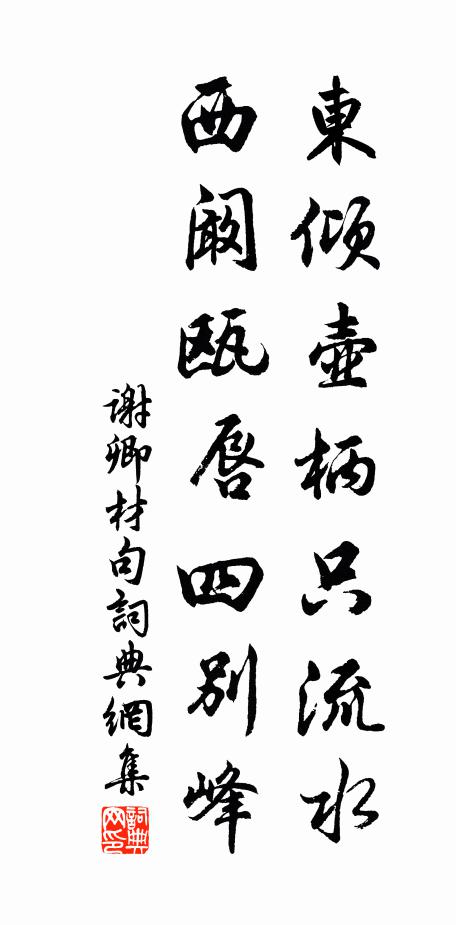 東傾壺柄只流水
西闞甌唇四別峰
謝卿材句詞典網集
詞典网印